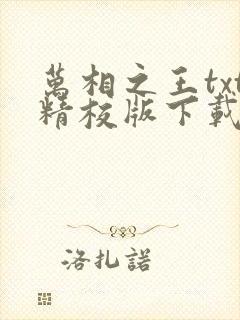 萬相之王txt
精校版下載
洛扎諾